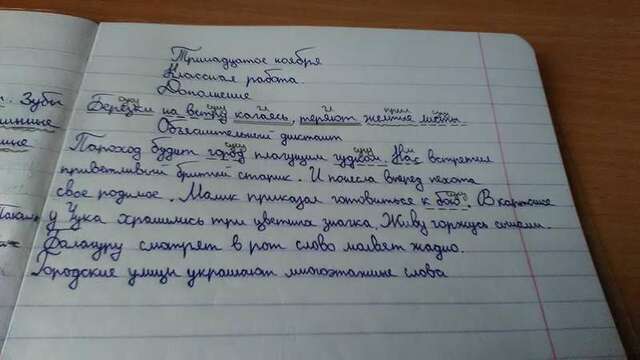 Тринадцатое ноября
Классная работа.
Дополнение
Зубы
Березки на ветру качаясь, теряют желтые листы.
Объяснительный диктант
Пароход будит город плачущим гудком. Нас встретил
приветливый бритый старик. И понесла вперед пехота
свое родимое. Малик приказал готовиться к бою. В картошке
у Чука хранились три цветных значка. Живу горжусь сынами.
Балагуру смотрят в рот слово ловят жадно.
Городские улицы украшают многоэтажные слова